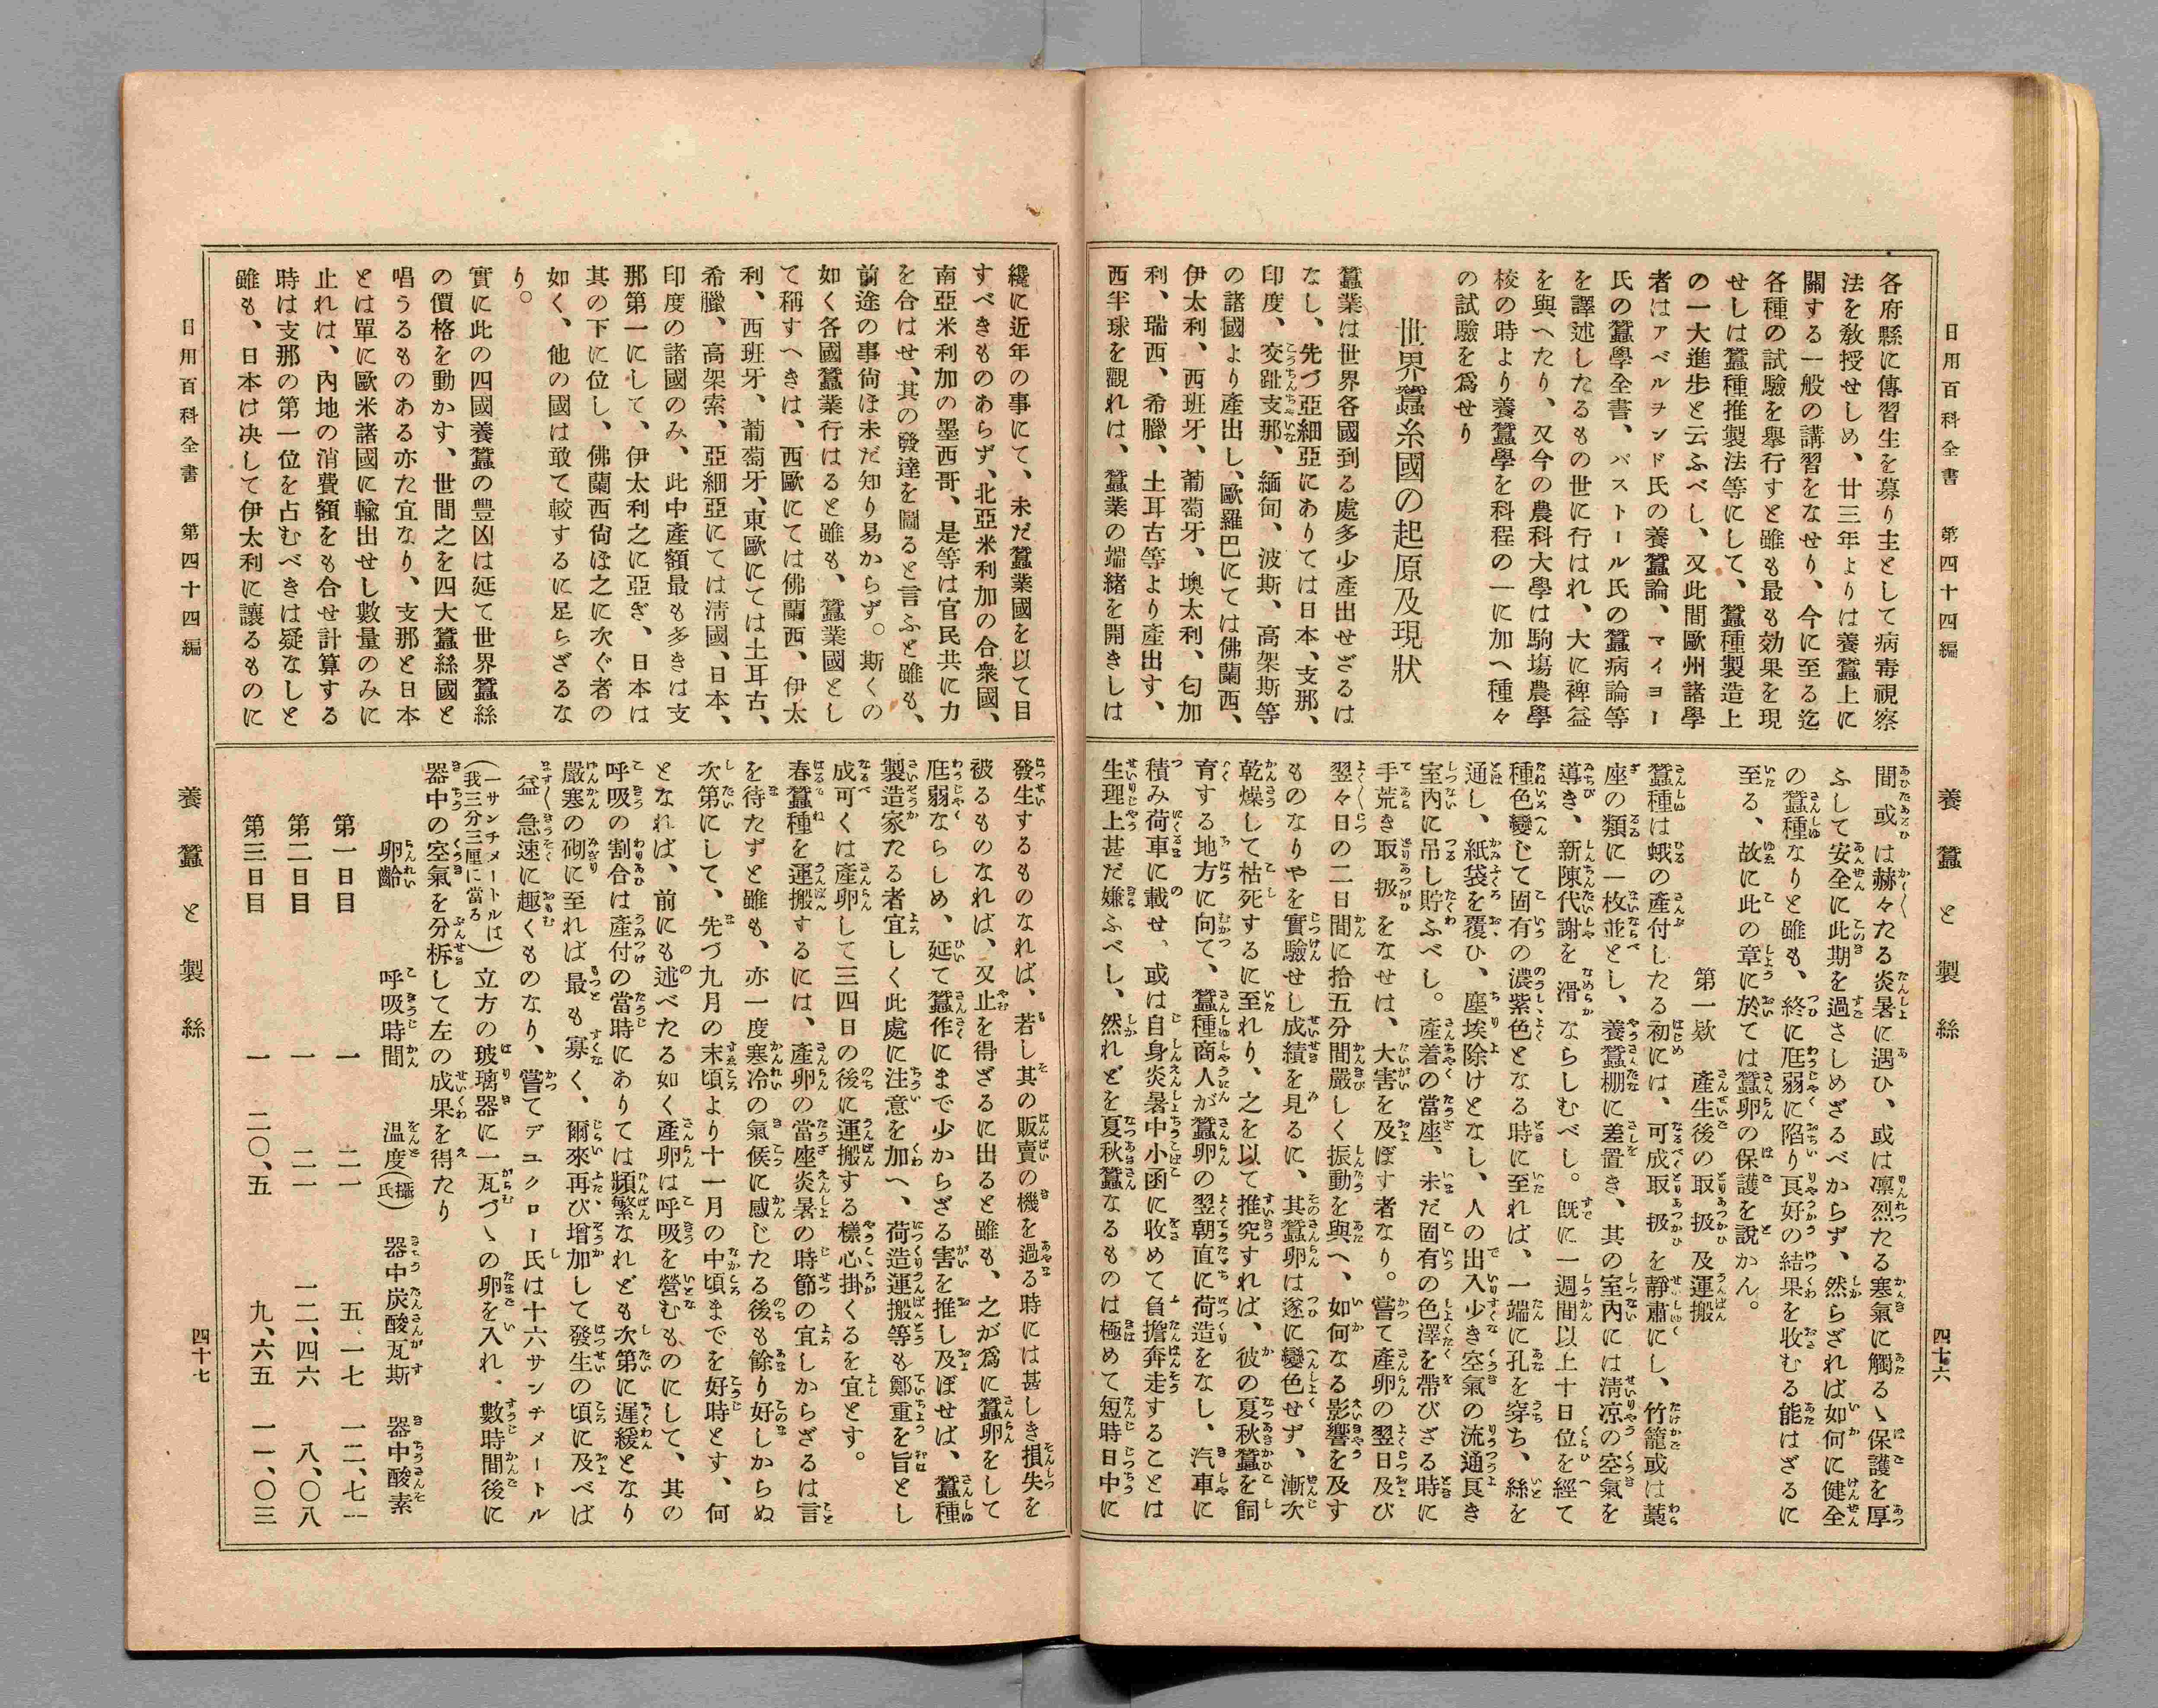 日用百科全書　第四十四編
養蠶と製絲
四十六
各府縣に傳習生を募り主として病毒視察
法を敎授せしめ、廿三年よりは養蠶上に
關する一般の講習をなせり、今に至る迄
各種の試驗を擧行すと雖も最も効果を現
せしは蠶種推製法等にして、蠶種製造上
の一大進歩と云ふべし、又此間歐州諸學
者はアベルヲンド氏の養蠶論、マイヨー
氏の蠶學全書、パストール氏の蠶病論等
を譯述したるもの世に行はれ、大に裨益
を與へたり、又今の農科大學は駒塲農學
校の時より養蠶學を科程の一に加へ種々
の試驗を爲せり
世界蠶糸國の起原及現狀
蠶業は世界各國到る處多少產出せざるは
なし、先づ亞細亞にありては日本、支那、
印度、交趾支那、緬甸、波斯、高架斯等
の諸國より產出し、歐羅巴にては佛蘭西、
伊太利、西班牙、葡萄牙、墺太利、匂加
利、瑞西、希臘、土耳古等より產出す、
西半球を觀れは、蠶業の端緒を開きしは
間或は赫々たる炎暑に遇ひ、或は凛烈たる寒氣に觸るゝ保護を厚
ふして安全に此期を過さしめざるべからず、然らざれば如何に健全
の蠶種なりと雖も、終に尫弱に陷り良好の結果を收むる能はざるに
至る、故に此の章に於ては蠶卵の保護を說かん。
第一欵　產生後の取扱及運搬
蠶種は蛾の產付したる初には、可成取扱を靜肅にし、竹籠或は藁
座の類に一枚並とし、養蠶棚に差置き、其の室內には淸凉の空氣を
導き、新陳代謝を滑ならしむべし。既に一週間以上十日位を經て
種色變じて固有の濃紫色となる時に至れば、一端に孔を穿ち、絲を
通し、紙袋を覆ひ、塵埃除けとなし、人の出入少き空氣の流通良き
室內に吊し貯ふべし。產着の當座、未だ固有の色澤を帶びざる時に
手荒き取扱をなせは、大害を及ぼす者なり。嘗て產卵の翌日及び
翌々日の二日間に拾五分間嚴しく振動を與へ、如何なる影響を及す
ものなりやを實驗せし成績を見るに、其蠶卵は遂に變色せず、漸次
乾燥して枯死するに至れり、之を以て推究すれば、彼の夏秋蠶を飼
育する地方に向て、蠶種商人が蠶卵の翌朝直に荷造をなし、汽車に
積み荷車に載せ、或は自身炎暑中小函に收めて負擔奔走することは
生理上甚だ嫌ふべし、然れどを夏秋蠶なるものは極めて短時日中に
纔に近年の事にて、未だ蠶業國を以て目
すべきものあらず、北亞米利加の合衆國、
南亞米利加の墨西哥、是等は官民共に力
を合はせ、其の發達を圖ると言ふと雖も、
前途の事尙ほ未だ知り易からず。斯くの
如く各國蠶業行はると雖も、蠶業國とし
て稱すへきは、西歐にては佛蘭西、伊太
利、西班牙、葡萄牙、東歐にては土耳古、
希臘、高架索、亞細亞にては淸國、日本、
印度の諸國のみ、此中產額最も多きは支
那第一にして、伊太利之に亞ぎ、日本は
其の下に位し、佛蘭西尙ほ之に次ぐ者の
如く、他の國は敢て較するに足らざるな
り。
實に此の四國養蠶の豐凶は延て世界蠶絲
の價格を動かす、世間之を四大蠶絲國と
唱うるものある亦た宜なり、支那と日本
とは單に歐米諸國に輸出せし數量のみに
止れは、內地の消費額をも合せ計算する
時は支那の第一位を占むべきは疑なしと
雖も、日本は决して伊太利に讓るものに
發生するものなれば、若し其の販賣の機を過る時には甚しき損失を
被るものなれば、又止を得ざるに出ると雖も、之が爲に蠶卵をして
尫弱ならしめ、延て蠶作にまで少からざる害を推し及ぼせば、蠶種
製造家たる者宜しく此處に注意を加へ、荷造運搬等も鄭重を旨とし
成可くは產卵して三四日の後に運搬する樣心掛くるを宜とす。
春蠶種を運搬するには、產卵の當座炎暑の時節の宜しからざるは言
を待たずと雖も、亦一度寒冷の氣候に感じたる後も餘り好しからぬ
次第にして、先づ九月の末頃より十一月の中頃までを好時とす、何
となれば、前にも述べたる如く產卵は呼吸を營むものにして、其の
呼吸の割合は產付の當時にありては頻繁なれども次第に遲緩となり
嚴寒の砌に至れば最も寡く、爾來再び增加して發生の頃に及べば
益急速に趣くものなり、嘗てデユクロー氏は十六サンチメートル
（一サンチメートルは我三分三厘に當る）立方の玻璃器に一瓦づゝの卵を入れ、數時間後に
器中の空氣を分析して左の成果を得たり
卵齡　呼吸時間　溫度（攝氏）　器中炭酸瓦斯　器中酸素
第一日目　一　二一　五、一七　一二、七一
第二日目　一　二一　一二、四六　八、〇八
第三日目　一　二〇、五　九、六五　一一、〇三
日用百科全書　第四十四編
養蠶と製絲
四十七